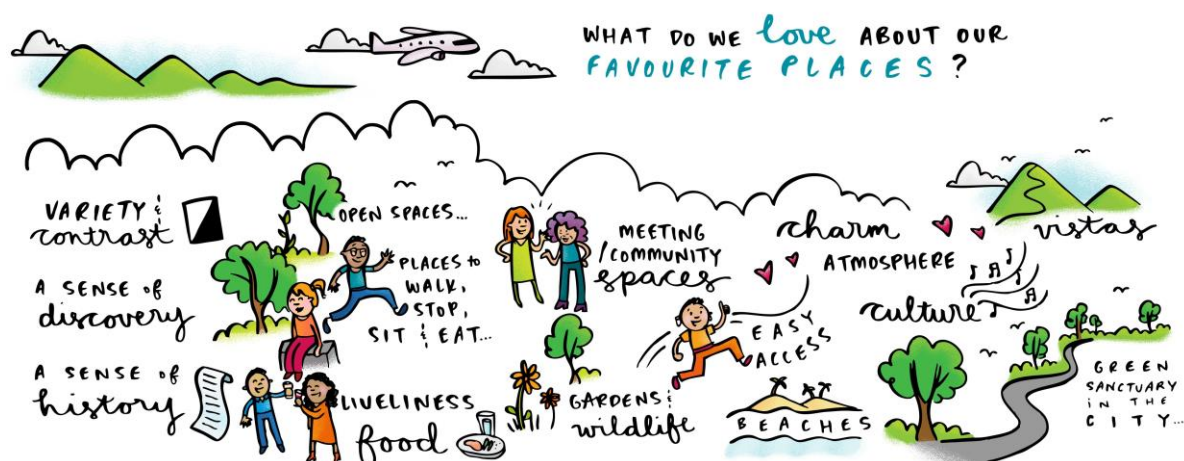 WHAT DO WE love ABOUT OUR
FAVOURITE PLACES?
VARIETY &
contrast
A SENSE of
discovery
A SENSE of
history
OPEN SPACES...
PLACES to
WALK,
STOP,
SIT & EAT...
LIVELINESS
food
MEETING
/COMMUNITY
spaces
GARDENS &
wildlife
EASY
ACCESS
BEACHES
charm
ATMOSPHERE
culture
vistas
GREEN
SANCTUARY
iN THE
CITY...